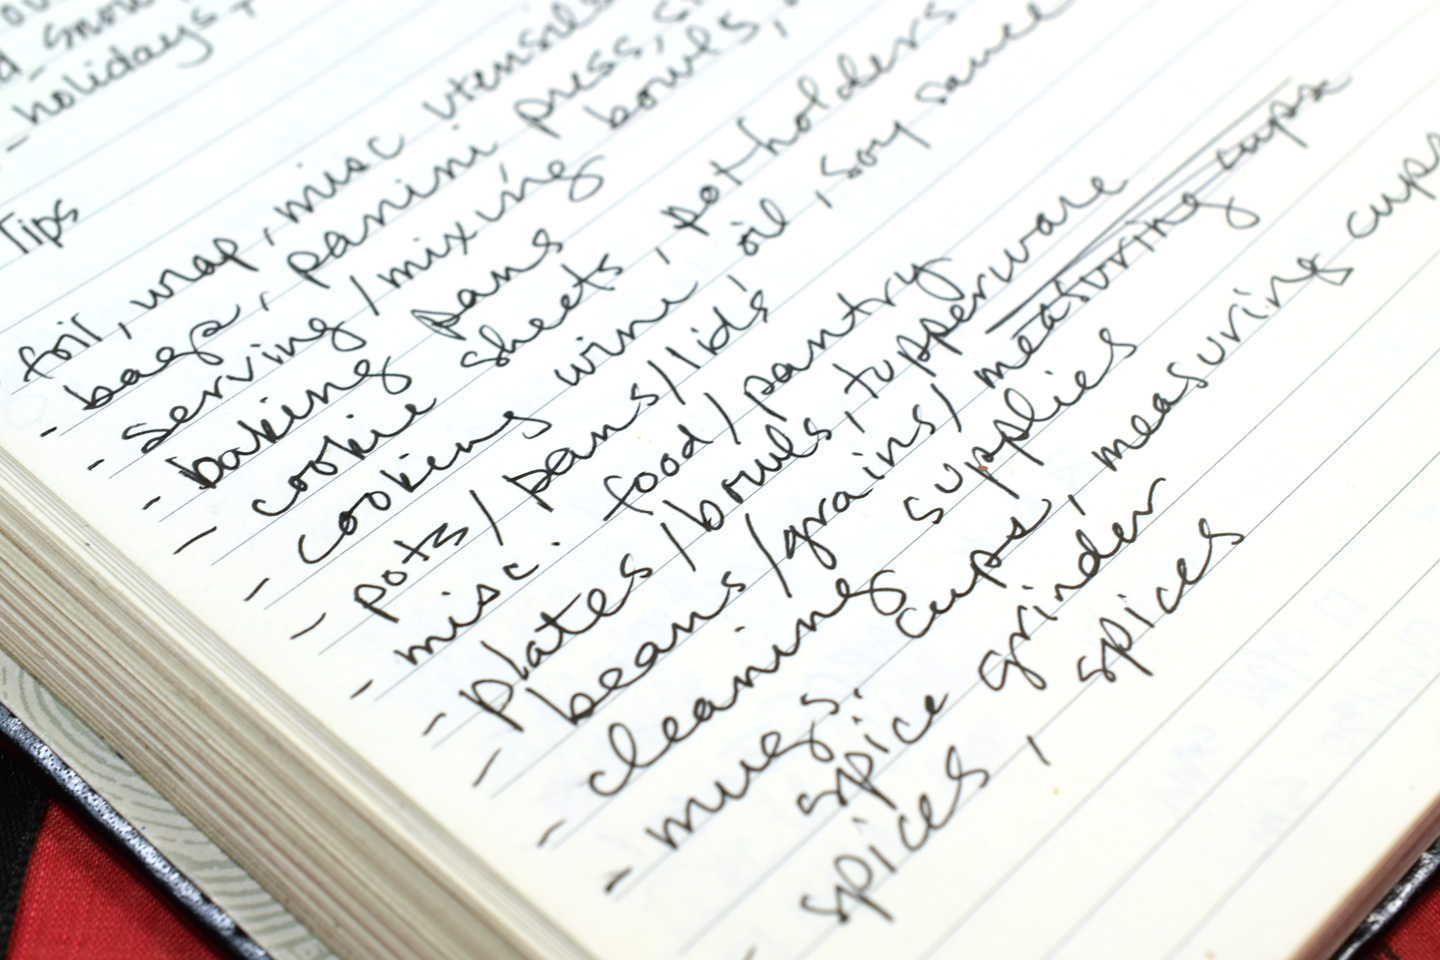 snow
- holidays
Tips
foil, wrap, misc utensils
- bags, panini press,
- serving / mixing bowls,
- baking pans
- cookie sheets, potholders
- cooking wine, oil, soy sauce
- pots / pans / lids
- misc. food / pantry
- plates / bowls, tupperware
- beans / grains / measuring cups
- cleaning supplies
- mugs. cups, measuring cups
spice grinder
- spices, spices